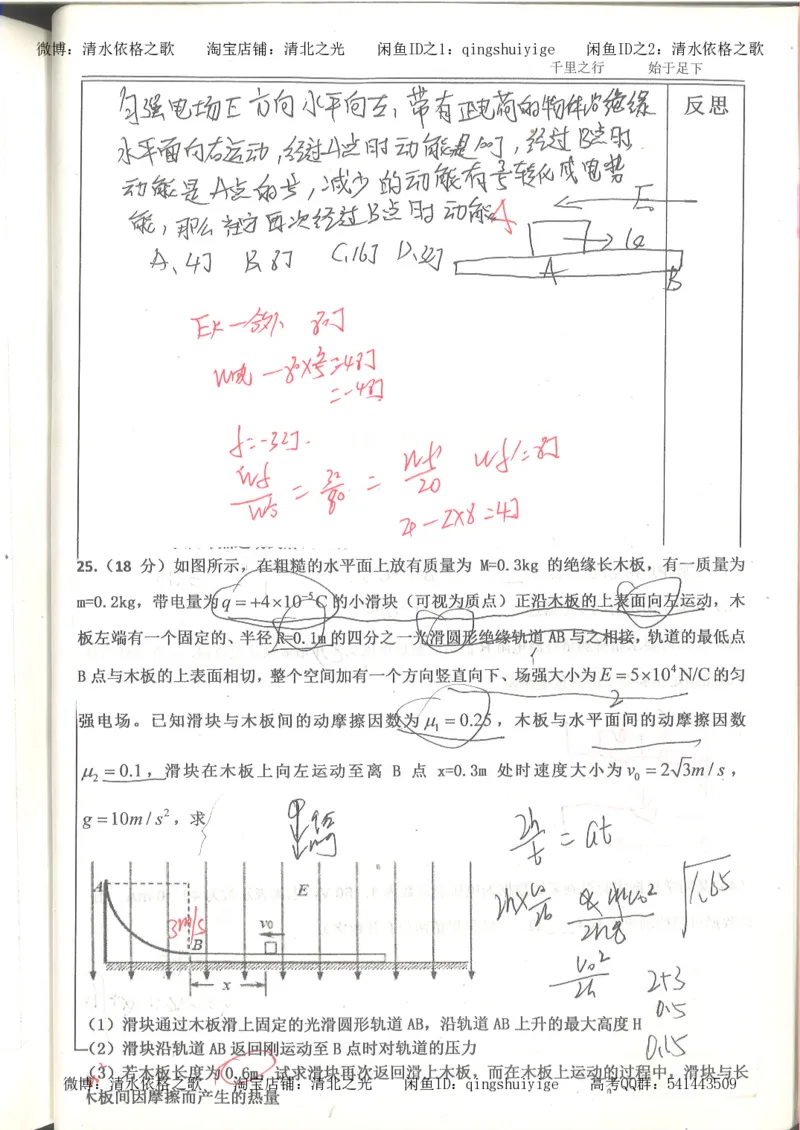 微博：清水依格之歌 淘宝店铺：清北之光 闲鱼ID之1：qingshuiyige 闲鱼ID之2：清水依格之歌
千里之行 始于足下
匀强电场E方向水平向左，带有正电荷的物体沿绝缘 反思
水平面向右运动，经过A点时动能是100J，经过B点时
动能是A点的1/5，减少的动能有3/5转化成电势
能，那么 再次经过B点时动能
A、4J B、8J C、16J D、
E
A
B
8J
f=-32J.
Wf'=8J
20-2×8=4J
25.（18 分）如图所示，在粗糙的水平面上放有质量为 M=0.3kg 的绝缘长木板，有一质量为
m=0.2kg，带电量为q=+4×10⁻⁵C的小滑块（可视为质点）正沿木板的上表面向左运动，木
板左端有一个固定的、半径R=0.1m的四分之一光滑圆形绝缘轨道AB与之相接，轨道的最低点
B点与木板的上表面相切，整个空间加有一个方向竖直向下、场强大小为E=5×10⁴N/C的匀
2
强电场。已知滑块与木板间的动摩擦因数为 μ₁=0.25，木板与水平面间的动摩擦因数
μ₂=0.1，滑块在木板上向左运动至离 B 点 x=0.3m 处时速度大小为v₀=2√3m/s，
g=10m/s²，求
2h/t = at
A E
3m/s
B v₀
x
v₀²/2h
2+3
0.5
0.15
√1.65
（1）滑块通过木板滑上固定的光滑圆形轨道 AB，沿轨道 AB 上升的最大高度H
（2）滑块沿轨道 AB 返回刚运动至 B 点时对轨道的压力
（3）若木板长度为0.6m，试求滑块再次返回滑上木板，而在木板上运动的过程中，滑块与长
微博：清水依格之歌 淘宝店铺：清北之光 闲鱼ID之2：清水依格之歌 高考QQ群：541443509
木板间因摩擦而产生的热量